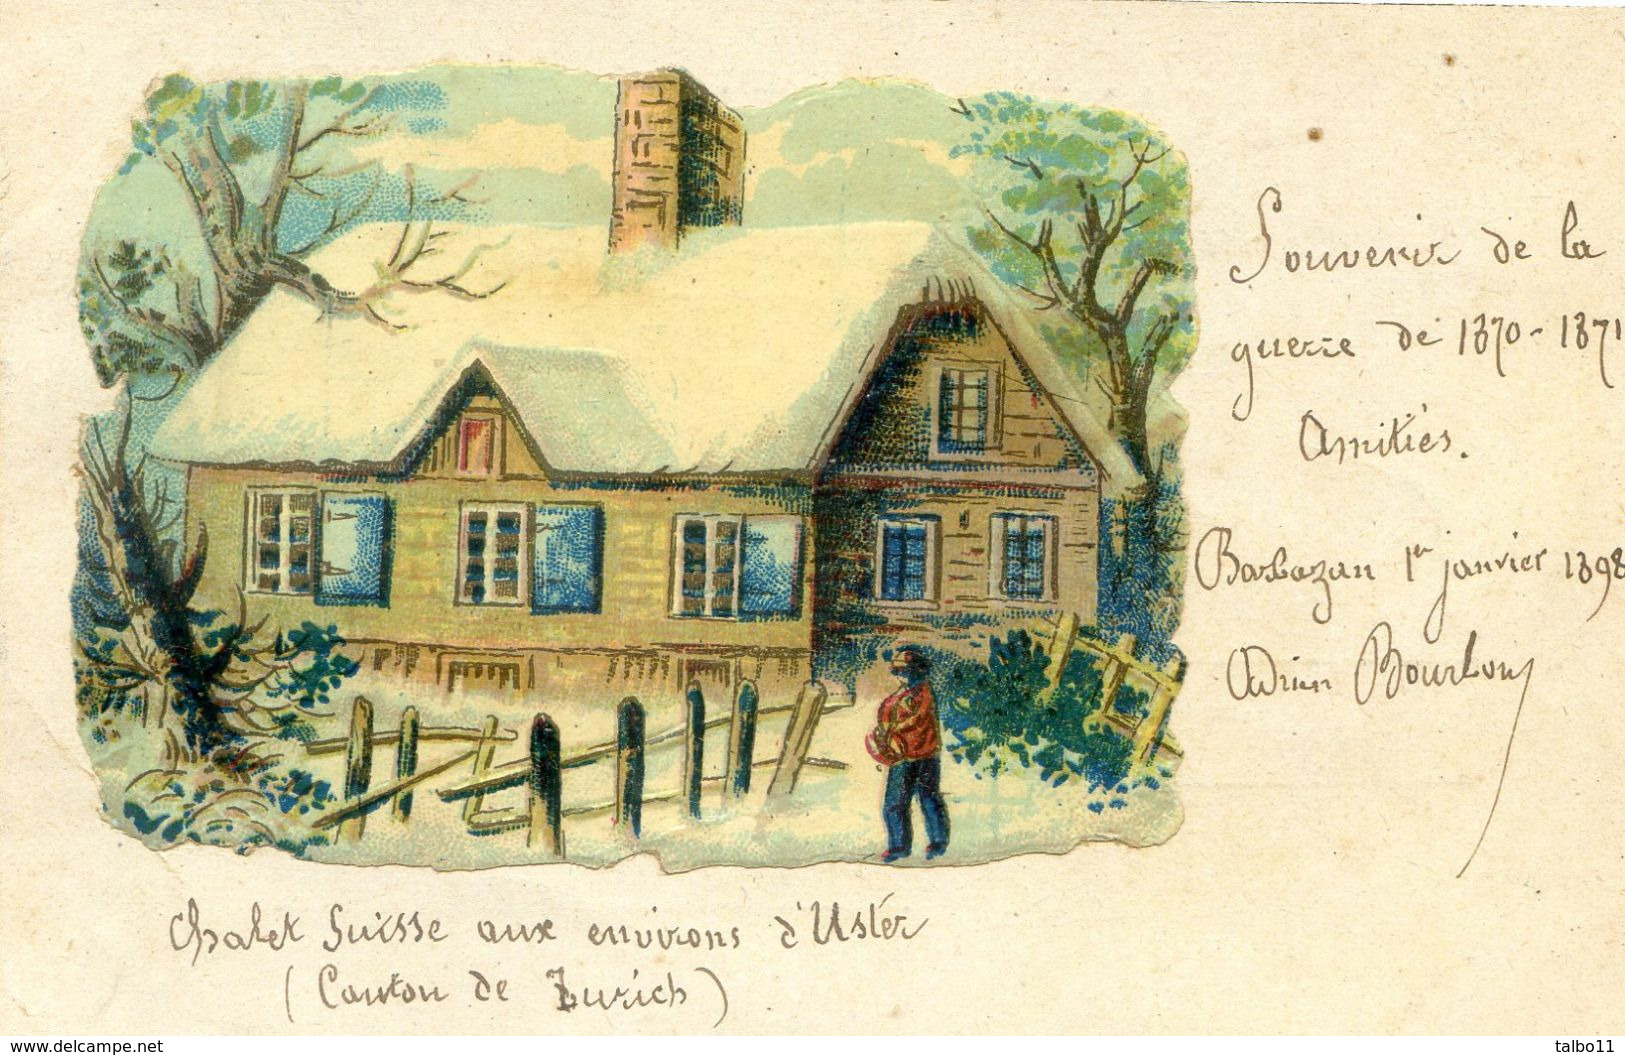 Souvenir de la
guerre de 1870-1871
Amitiés.
Barbazan 1er janvier 1898
Adrien
Chalet Suisse aux environs d'Uster
(Canton de Zurich)
www.delcampe.net
talbo11